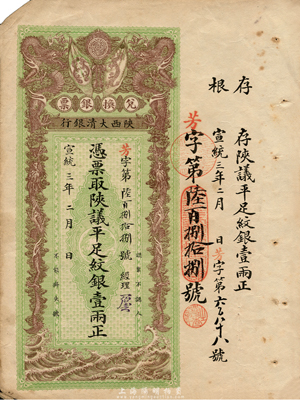 存
根
存陝議平足紋銀壹兩正
宣統三年二月 日芳字第六百八十八號
芳字第陸百捌拾捌號
票銀換兌
行銀清大西陝
芳字第陸百捌拾捌號 經理
憑票取陝議平足紋銀壹兩正
宣統三年二月 日
認票不認人